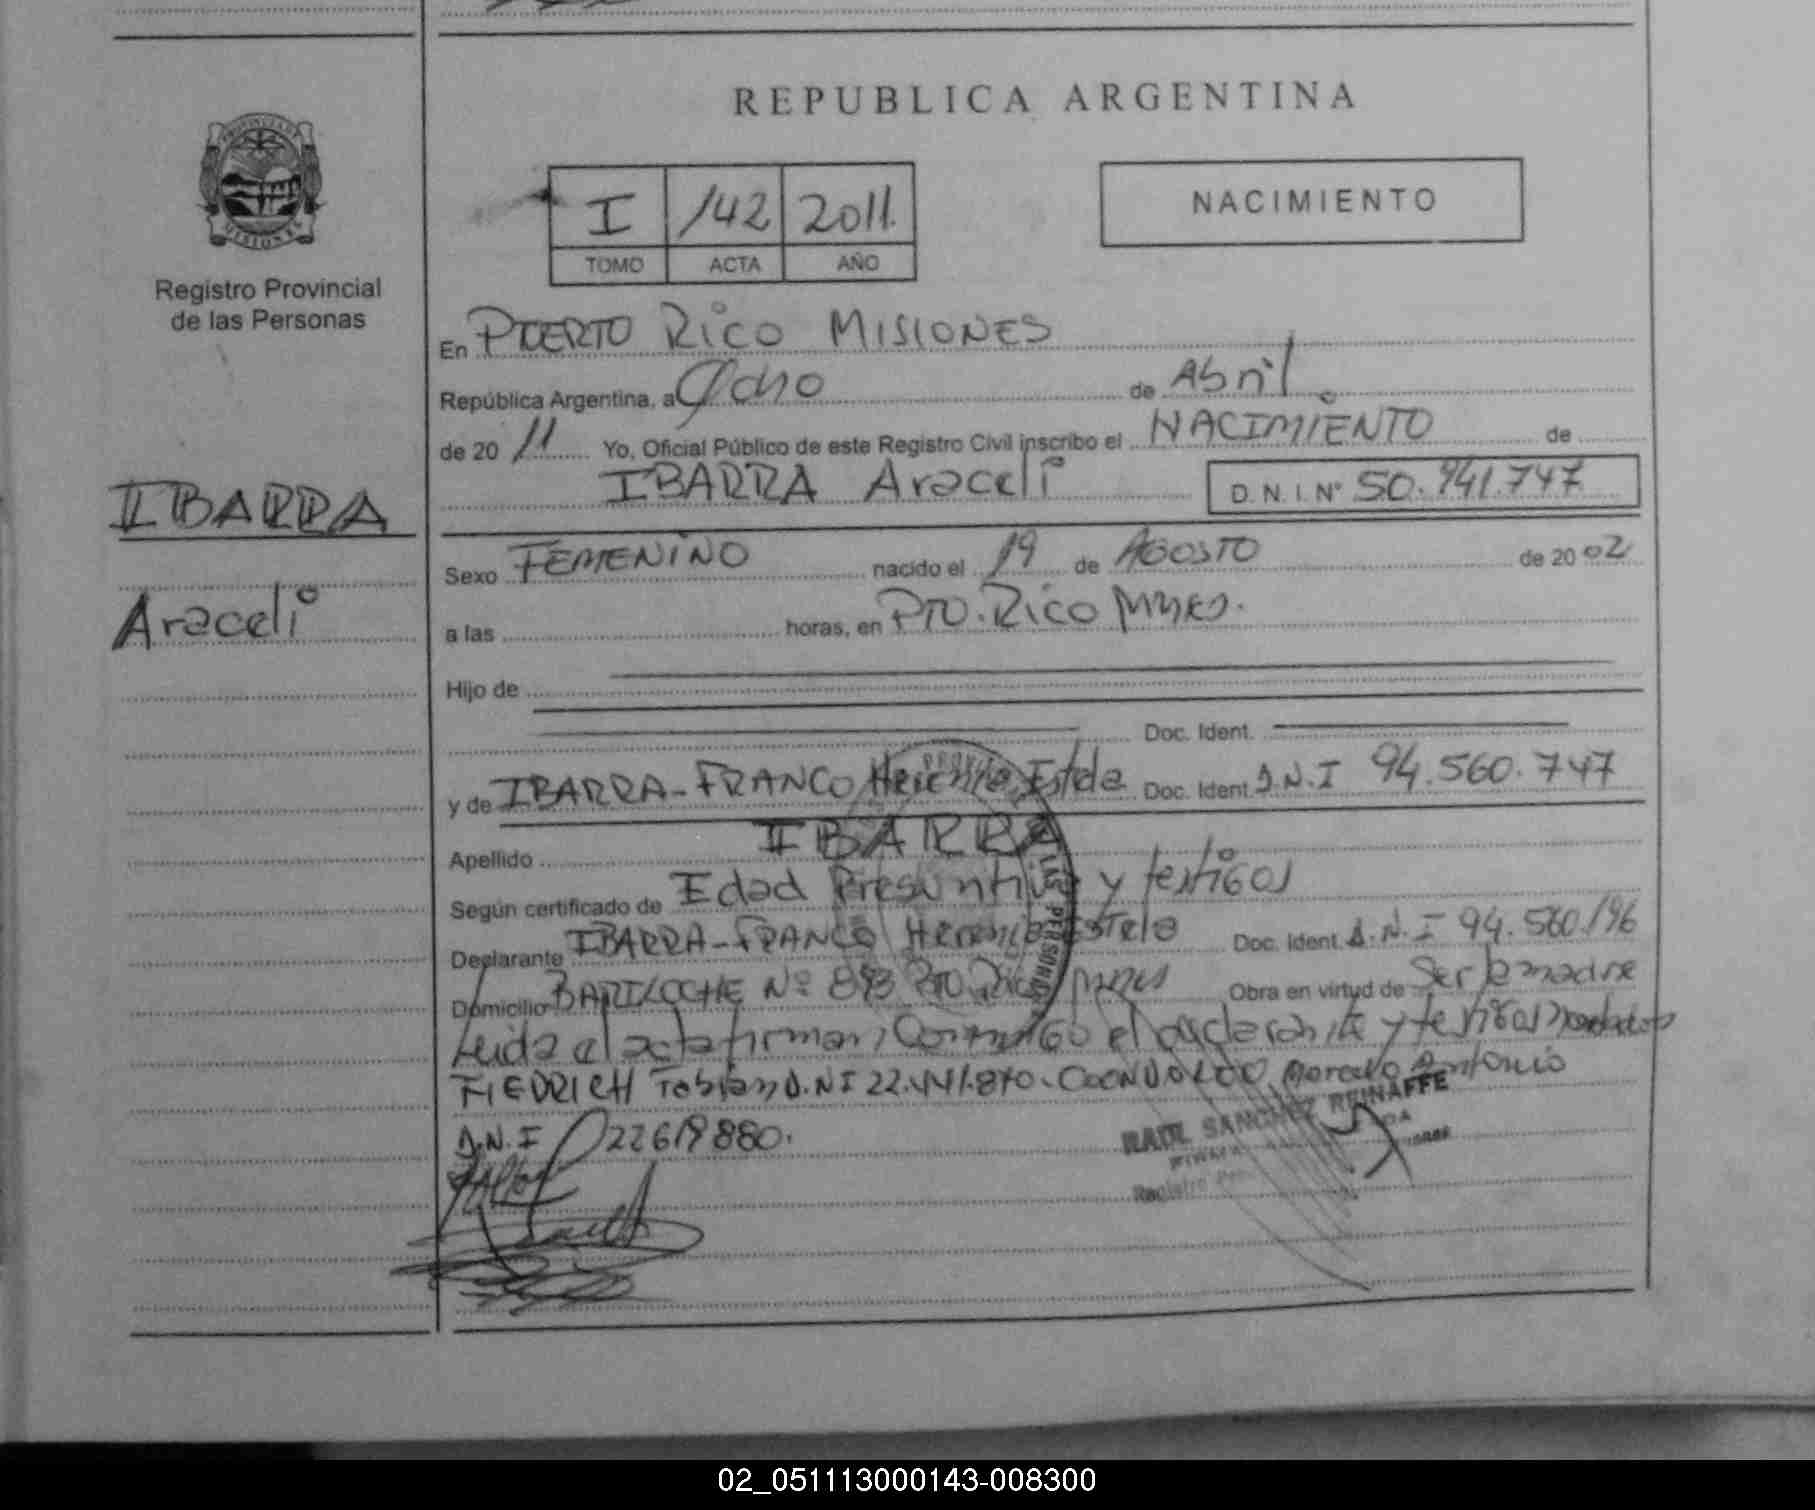 REPUBLICA ARGENTINA
PROVINCIA DE
MISIONES
Registro Provincial
de las Personas
I 142 2011.
TOMO ACTA AÑO
NACIMIENTO
En PUERTO Rico MISIONES
República Argentina, a Ocho de Abril.
de 20 11 Yo, Oficial Público de este Registro Civil inscribo el NACIMIENTO de
IBARRA Araceli D. N. I. Nº 50.941.747
IBARRA
Araceli
Sexo FEMENINO nacido el 19 de AGOSTO de 20 02
a las horas, en PTO. Rico Mnes.
Hijo de
Doc. Ident.
y de IBARRA-FRANCO Estela Doc. Ident. D.N.I 94.560.747
Apellido IBARRA
Según certificado de Edad Presuntiva y testigos
Declarante IBARRA-FRANCO Estela Doc. Ident. D.N.I 94.560.196
Domicilio BARILOCHE Nº 893 Pto Rico Mnes Obra en virtud de Ser la madre
Leida el acta firman Conmigo el declarante y testigos
FIEDRICH Fabian D.NI 22.441.870. Marcelo Antonio
D.N.I 22619880.
LAS PERSONAS
RAUL SANCHEZ REINAFFE
Registro
02_051113000143-008300